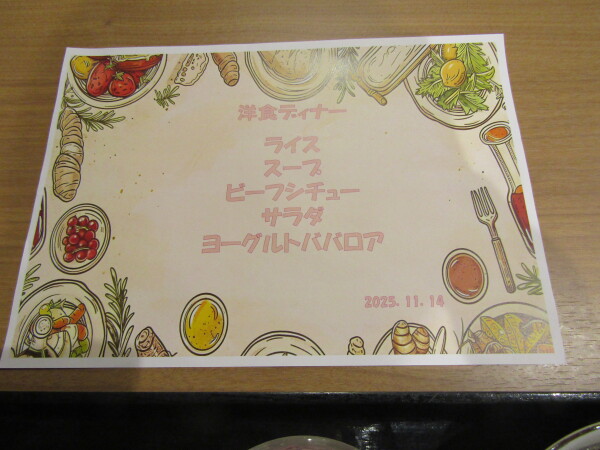 洋食ディナー
ライス
スープ
ビーフシチュー
サラダ
ヨーグルトババロア
2025.11.14